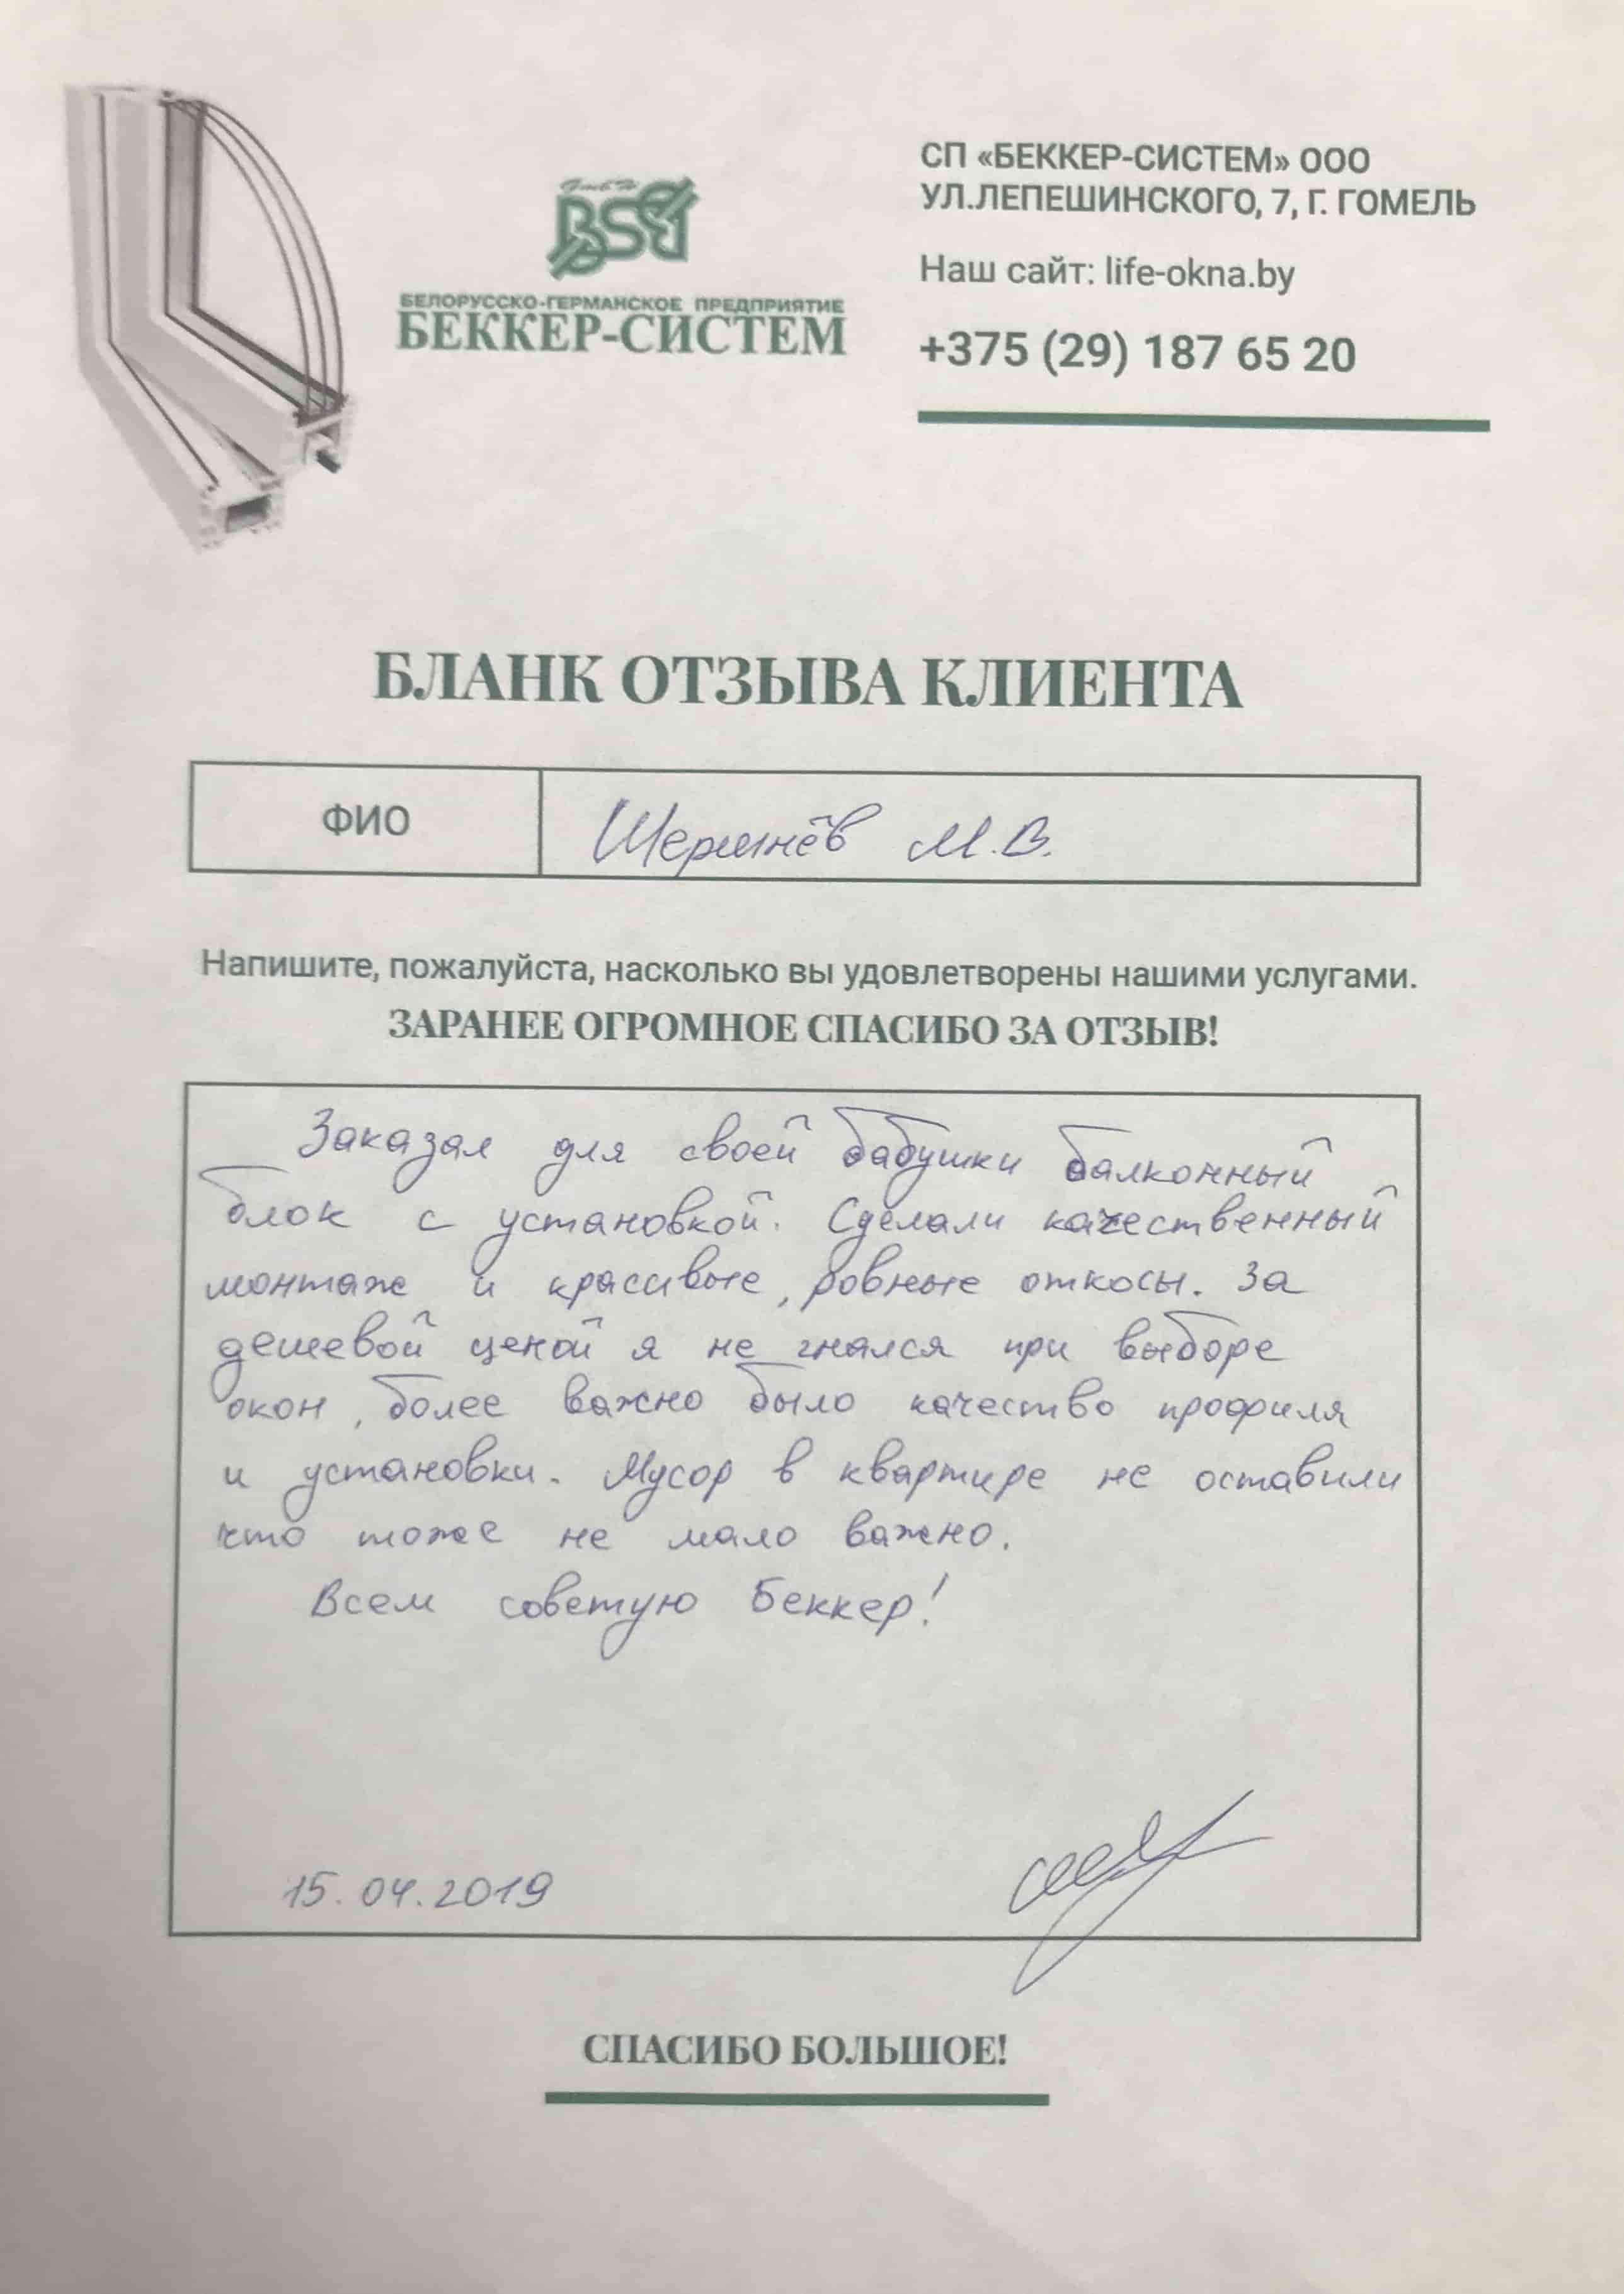 СП «БЕККЕР-СИСТЕМ» ООО
УЛ.ЛЕПЕШИНСКОГО, 7, Г. ГОМЕЛЬ
Наш сайт: life-okna.by
+375 (29) 187 65 20
BSG
БЕЛОРУССКО-ГЕРМАНСКОЕ ПРЕДПРИЯТИЕ
БЕККЕР-СИСТЕМ
БЛАНК ОТЗЫВА КЛИЕНТА
ФИО
М.В.
Напишите, пожалуйста, насколько вы удовлетворены нашими услугами.
ЗАРАНЕЕ ОГРОМНОЕ СПАСИБО ЗА ОТЗЫВ!
Заказал для своей бабушки балконный
блок с установкой. Сделали качественный
монтаж и красивые, ровные откосы. За
дешевой ценой я не гнался при выборе
окон, более важно было качество профиля
и установки. Мусор в квартире не оставили
что тоже не мало важно.
Всем советую Беккер!
15.04.2019
СПАСИБО БОЛЬШОЕ!